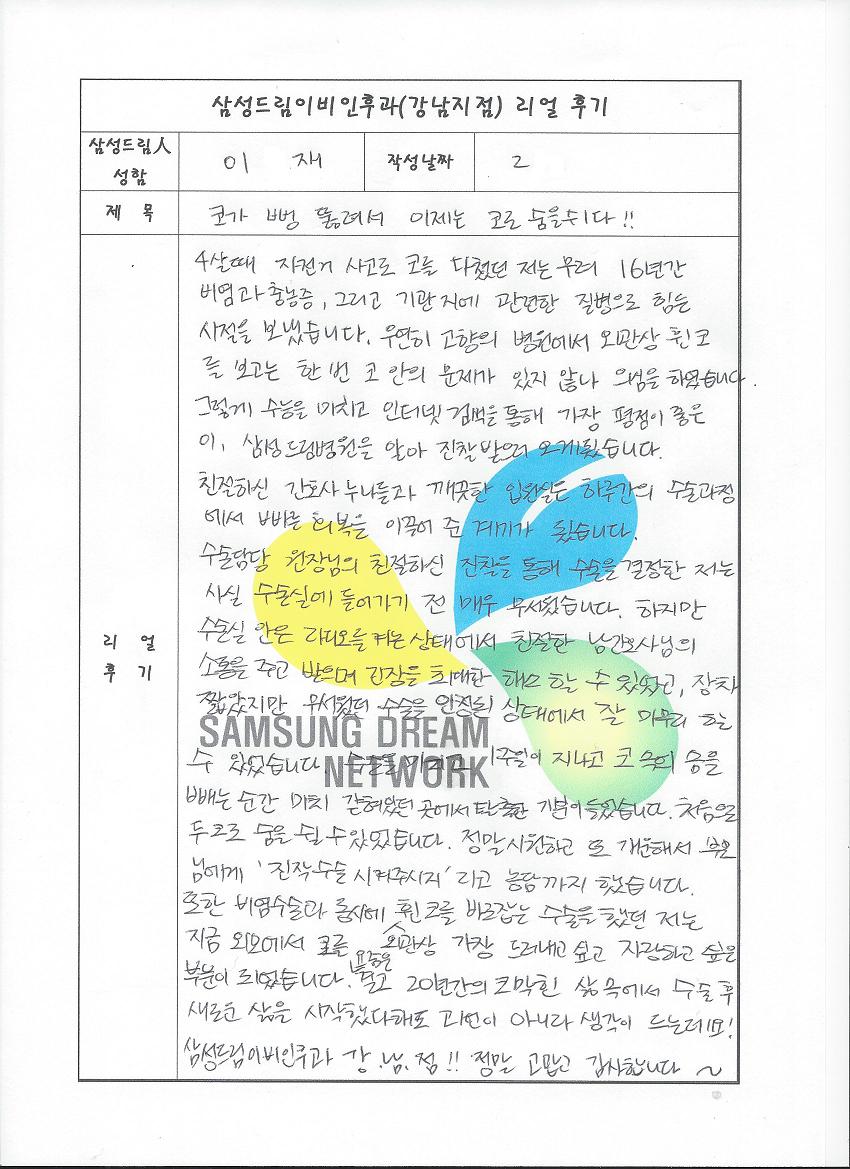 삼성드림이비인후과(강남지점) 리얼 후기
삼성드림人 성함
이 재
작성날짜
2
제 목
코가 뻥 뚫려서 이제는 코로 숨을쉬다!!
리 얼 후 기
4살때 자전거 사고로 코를 다쳤던 저는 무려 16년간
비염과 축농증, 그리고 기관지에 관련한 질병으로 힘든
시절을 보냈습니다. 우연히 고향의 병원에서 외관상 휜 코
를 보고는 한 번 코 안의 문제가 있지 않나 의심을 하였습니다.
그렇게 수능을 마치고 인터넷 검색을 통해 가장 평점이 좋은
이, 삼성드림병원을 알아 진찰받으러 오게됬습니다.
친절하신 간호사 누나들과 깨끗한 입원실은 하루간의 수술과정
에서 빠른 회복을 이끌어 준 계기가 됬습니다.
수술담당 원장님의 친절하신 진찰을 통해 수술을 결정한 저는
사실 수술실에 들어가기 전 매우 무서웠습니다. 하지만
수술실 안은 라디오를 켜논 상태에서 친절한 남간호사님의
소통을 주고 받으며 긴장을 최대한 해소 할 수 있었고, 장차
짧았지만 무서웠던 수술을 안정된 상태에서 잘 마무리 하는
수 있었습니다. 수술을 마치고 1주일이 지나고 코 속의 솜을
SAMSUNG DREAM
NETWORK
빼는 순간 마치 갇혀있던 곳에서 탈출한 기분이 들었습니다. 처음으로
두 코로 숨을 쉴 수 있었습니다. 정말 시원하고 또 개운해서 부모
님에게 '진작수술 시켜주시지' 라고 농담까지 했습니다.
또한 비염수술과 동시에 휜 코를 바로잡는 수술을 했던 저는
지금 외모에서 코를 외관상 가장 드러내고 싶고 자랑하고 싶은
부분이 되었습니다. 요즘은 20년간의 코막힌 삶 속에서 수술 후
새로운 삶을 시작했다해도 과언이 아니라 생각이 드는데요!
삼성드림이비인후과 강.남.점!! 정말 고맙고 감사합니다 ~